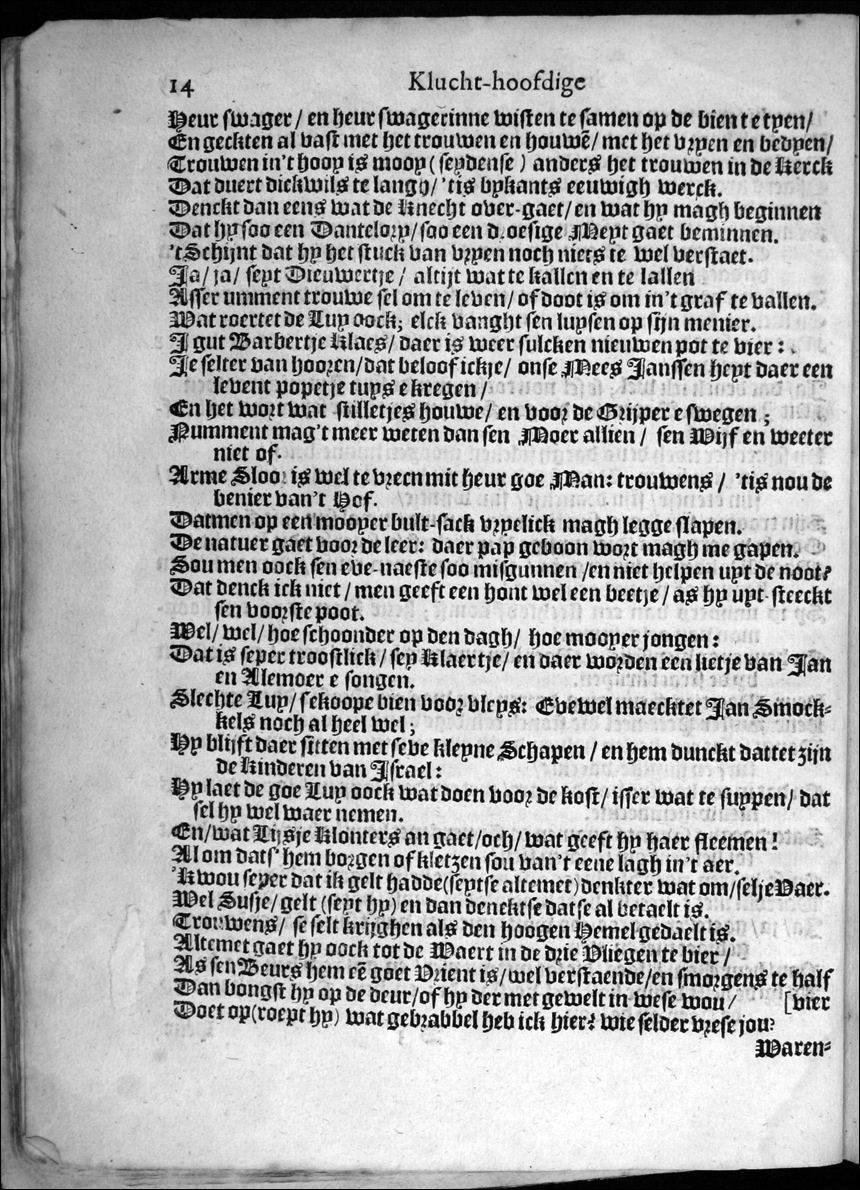 14 Klucht-hoofdige
Heur swager / en heur swagerinne wisten te samen op de bien te tyen /
En geckten al vast met het trouwen en houwē / met het vryen en bedyen /
Trouwen in't hooy is mooy ( seydense ) anders het trouwen in de Kerck
Dat duert dickwils te langh / 'tis bykants eeuwigh werck.
Denckt dan eens wat de Knecht over-gaet / en wat hy magh beginnen
Dat hy soo een Dantelory / soo een droesige Meyt gaet beminnen.
't Schijnt dat hy het stuck van vryen noch niets te wel verstaet.
Ja / ja / seyt Dieuwertje / altijt wat te kallen en te lallen
Asser umment trouwe sel om te leven / of doot is om in't graf te vallen.
Wat roertet de Luy oock; elck vanght sen luysen op sijn menier.
J gut Barbertje Klaes / daer is weer sulcken nieuwen pot te vier :
Je selter van hooren / dat beloof ickje / onse Mees Janssen heyt daer een
levent popetje tuys ekregen /
En het wort wat stilletjes houwe / en voor de Grijper eswegen ;
Numment mag't meer weten dan sen Moer allien / sen Wijf en weeter
niet of.
Arme Sloor is wel te vreen mit heur goe Man: trouwens / 'tis nou de
benier van't Hof.
Datmen op een mooyer bult-sack vryelick magh legge slapen.
De natuer gaet voor de leer: daer pap geboon wort magh me gapen.
Sou men oock sen eve-naeste soo misgunnen / en niet helpen uyt de noot?
Dat denck ick niet / men geeft een hont wel een beetje / as hy uyt-steeckt
sen voorste poot.
Wel / wel / hoe schoonder op den dagh / hoe mooyer jongen :
Dat is seper troostlick / sey Klaertje / en daer worden een lietje van Jan
en Alemoer e songen.
Slechte Luy / sekoope bien voor vleys: Evewel maecktet Jan Smock-
kels noch al heel wel ;
Hy blijft daer sitten met seve kleyne Schapen / en hem dunckt dattet zijn
de Kinderen van Israel :
Hy laet de goe Luy oock wat doen voor de kost / isser wat te suypen / dat
sel hy wel waer nemen.
En / wat Lijsje Klonters an gaet / och / wat geeft hy haer fleemen !
Al om dats' hem borgen of kletzen sou van't eene lagh in't aer.
'K wou seper dat ik gelt hadde (seytse altemet) denkter wat om / selje Vaer.
Wel Susje / gelt (seyt hy) en dan dencktse datse al betaelt is.
Trouwens / se selt krijghen als den hoogen Hemel gedaelt is.
Altemet gaet hy oock tot de Waert in de drie Vliegen te bier /
As sen Beurs hem eē goet Vrient is / wel verstaende / en smorgens te half
Dan bongst hy op de deur / of hy der met gewelt in wese wou / [vier
Doet op (roept hy) wat gebrabbel heb ick hier? wie selder vrese jou?
Waren-